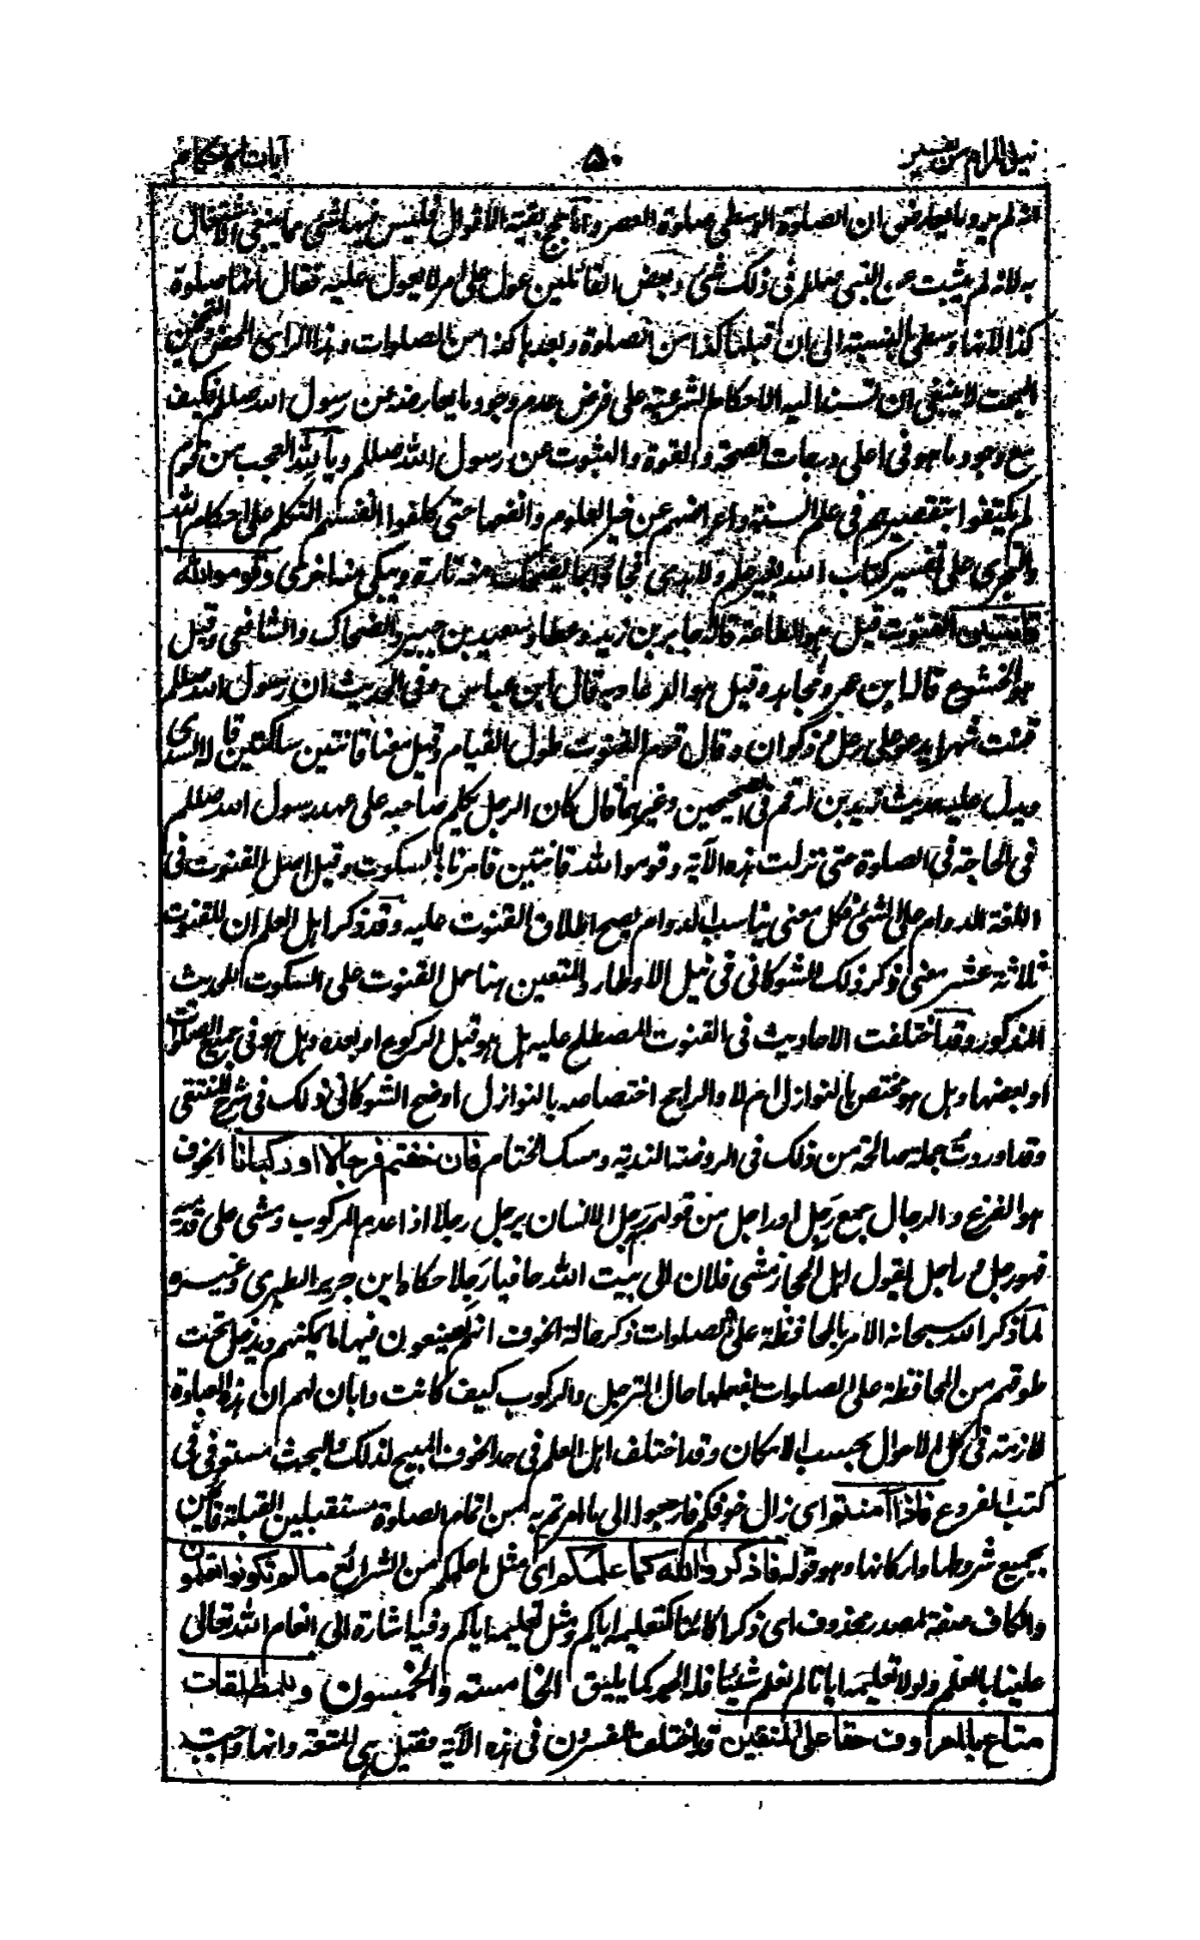 نيل المرام من تفسير
٥٠
آيات الاحكام
انه لم يرد ما يعارض ان الصلوة الوسطى صلوة العصر واما حجج بقية الاقوال فليس فيها شئ مما ينبغى الاشتغال
به لانه لم يثبت عن النبى صللم فى ذلك شئ وبعض القائلين عول على امر لا يعول عليه فقال انها صلوة
كذا لانها وسطى بالنسبة الى ان قبلها كذا من الصلوة وبعدها كذا من الصلوات وهذا الراى المحض والتخمين
البحت لا ينبغى ان تسند اليه الاحكام الشرعية على فرض عدم وجود ما يعارضه عن رسول الله صللم فكيف
مع وجود ما هو فى اعلى درجات الصحة والقوة والثبوت عن رسول الله صللم ويا لله العجب من قوم
لم يكتفوا بتقصيرهم فى علم السنة واعراضهم عن خير العلوم وانفعها حتى كلفوا انفسهم التكلم على احكام الله
والتجرى على تفسير كتاب الله بغير علم ولا هدى فجاؤا بما يضحك منه تارة ويبكى منه اخرى وقوموا لله
قانتين القنوت قيل هو الطاعة قاله جابر بن زيد وعطاء وسعيد بن جبير والضحاك والشافعى وقيل
هو الخشوع قاله ابن عمر ومجاهد وقيل هو الدعاء وبه قال ابن عباس وفى الحديث ان رسول الله صللم
قنت شهرا يدعو على رعل وذكوان وقال قوم القنوت طول القيام وقيل معناه قانتين ساكتين قاله السدى
ويدل عليه حديث زيد بن ارقم فى الصحيحين وغيرهما قال كان الرجل يكلم صاحبه على عهد رسول الله صللم
فى الحاجة فى الصلوة حتى نزلت هذه الآية وقوموا لله قانتين فامرنا بالسكوت وقيل اصل القنوت فى
اللغة الدوام على الشئ فكل معنى يناسب الدوام يصح اطلاق القنوت عليه وقد ذكر اهل العلم ان للقنوت
ثلاثة عشر معنى ذكر ذلك الشوكانى فى نيل الاوطار والمتعين هنا حمل القنوت على السكوت للحديث
المذكور وقد اختلفت الاحاديث فى القنوت المصطلح عليه هل هو قبل الركوع او بعده وهل هو فى جميع الصلوات
او بعضها وهل هو مختص بالنوازل ام لا والراجح اختصاصه بالنوازل اوضح الشوكانى ذلك فى شرح المنتقى
وقد اوردت جملة صالحة من ذلك فى الروضة الندية ومسك الختام فان خفتم فرجالا او ركبانا الخوف
هو الفزع والرجال جمع رجل او راجل من قولهم رجل الانسان يرجل رجلا اذا عدم المركوب ومشى على قدميه
فهو رجل وراجل يقول اهل الحجاز مشى فلان الى بيت الله حافيا رجلا حكاه ابن جرير الطبرى وغيره
لما ذكر الله سبحانه الامر بالمحافظة على الصلوات ذكر حالة الخوف انهم يصنعون فيها ما يمكنهم ويدخل تحت
طوقهم من المحافظة على الصلوات بفعلها حال الترجل والركوب كيف كانت وابان لهم ان هذه الصلوة
لازمة فى كل الاحوال بحسب الامكان وقد اختلف اهل العلم فى حد الخوف المبيح لذلك والبحث مستوفى فى
كتب الفروع فاذا امنتم اى زال خوفكم فارجعوا الى ما امرتم به من اتمام الصلوة مستقبلين القبلة قائمين
بجميع شروطها واركانها وهو قوله فاذكروا الله كما علمكم اى مثل ما علمكم من الشرائع ما لم تكونوا تعلمون
والكاف صفة لمصدر محذوف اى ذكرا كائنا كتعليمه اياكم ومثل تعليمه اياكم وفيه اشارة الى انعام الله تعالى
علينا بالعلم ولولا تعليمه ايانا لم نعلم شيئا فله الحمد كما يليق الخامسة والخمسون وللمطلقات
متاع بالمعروف حقا على المتقين قد اختلف المفسرون فى هذه الآية فقيل هى المتعة وانها واجبة